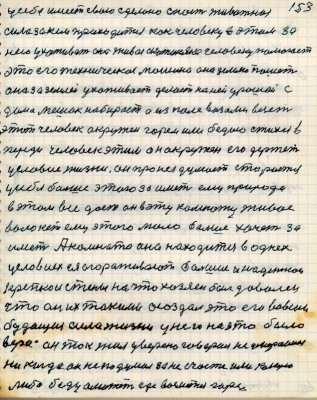 153
у себя имеет свою сделано скот животная
сила за кем приходится как человеку в этим за
него ухаживат она живая скотиняка человеку помогает
это его техническая машина она землю пашет
она за землей ухаживает делает на ней урожай с
дома мешок набирает а из поля возами везет
этот человек окружен горем или бедою стихов в
переди человек этим он окружен его держат
условие жизни. он про не думает старается
у себя больше этого заиметь ему природа
в этом все дает он в эту комнату живое
волокет ему этого мало больше хочет за
иметь А комната она находится в одних
условиях ее огораживают большие и надежные
крепкой стены на что хозяен был доволен
что он их такими создал это его вовсем
будущая сила жизни у него на это было
вера он так жил уверено говорил не умираем
никогда он не подумал за не счастье или какую
либо беду а может где возмется горе